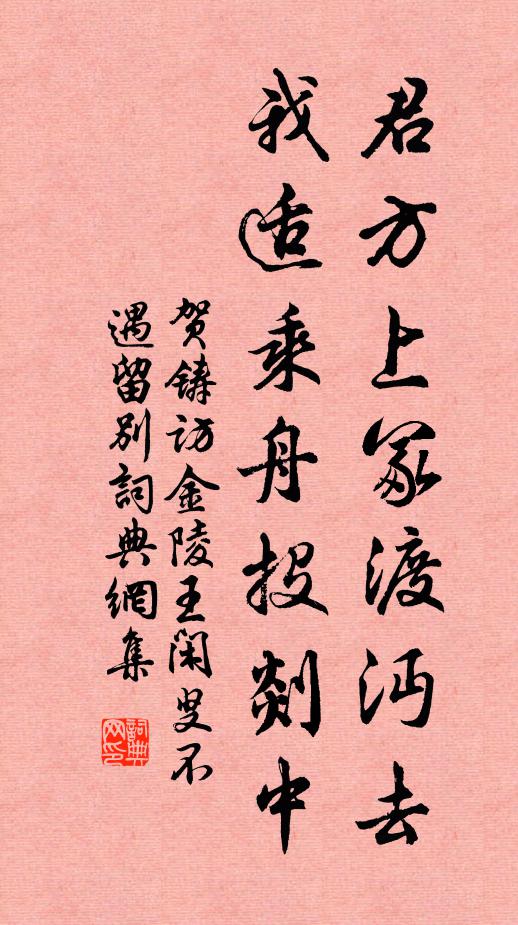 君方上冢渡沔去
我适乘舟投剡中
贺铸访金陵王闲叟不
遇留别詞典網集
詞典
网印